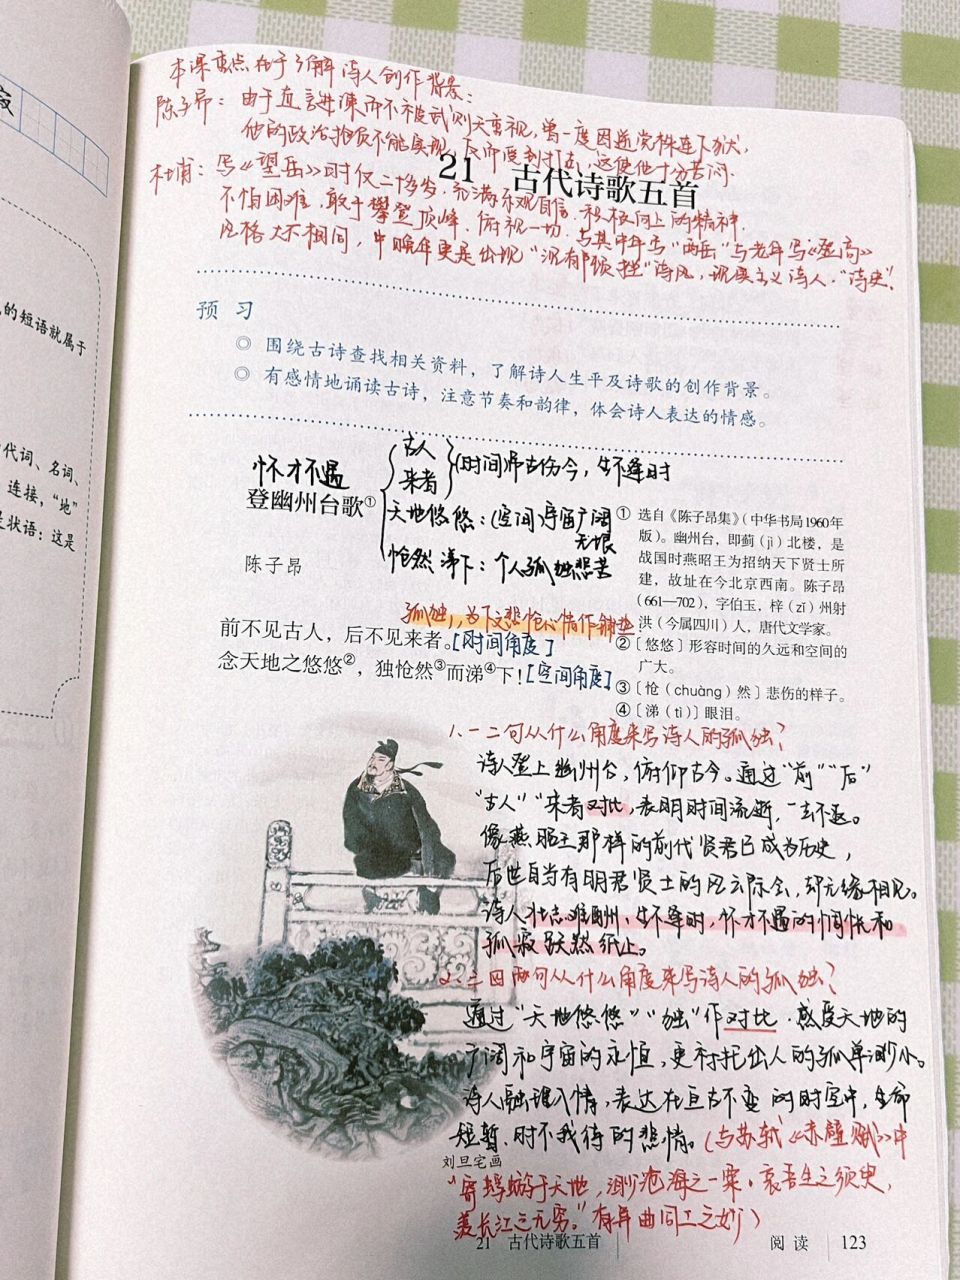 的短语就属于
代词、名词、
连接，“地”
是状语：这是
本课重点在于了解诗人创作背景：
陈子昂：由于直言进谏而不被武则天重视，曾一度因逆党株连下狱，
他的政治抱负不能实现，反而受到打击，这使他十分苦闷.
21 古代诗歌五首
杜甫：写《望岳》时仅二十多岁，充满乐观自信、积极向上的精神.
不怕困难，敢于攀登顶峰、俯视一切.与其中年写“西岳”与老年写《登高》
风格大不相同，中晚年更是出现“沉郁顿挫”诗风，现实主义诗人.“诗史”.
预 习
◎ 围绕古诗查找相关资料，了解诗人生平及诗歌的创作背景。
◎ 有感情地诵读古诗，注意节奏和韵律，体会诗人表达的情感。
怀才不遇
登幽州台歌①
陈子昂
古人
来者
(时间)吊古伤今，生不逢时
天地悠悠：(空间)宇宙广阔
无垠
怆然涕下：个人孤独悲苦
孤独，为下文悲怆心情作铺垫
前不见古人，后不见来者。[时间角度]
念天地之悠悠②，独怆然③而涕④下！[空间角度]
① 选自《陈子昂集》（中华书局1960年
版）。幽州台，即蓟（jì）北楼，是
战国时燕昭王为招纳天下贤士所
建，故址在今北京西南。陈子昂
（661—702），字伯玉，梓（zǐ）州射
洪（今属四川）人，唐代文学家。
②〔悠悠〕形容时间的久远和空间的
广大。
③〔怆（chuàng）然〕悲伤的样子。
④〔涕（tì）〕眼泪。
1.一二句从什么角度来写诗人的孤独？
诗人登上幽州台，俯仰古今。通过“前”“后”
“古人”“来者对比，表明时间流逝，一去不返。
像燕昭王那样的前代贤君已成为历史，
后世自当有明君贤士的风云际会，却无缘相见。
诗人壮志难酬、生不逢时，怀才不遇的惆怅和
孤寂跃然纸上。
2.三四两句从什么角度来写诗人的孤独？
通过“天地悠悠”“独”作对比，感受天地的
广阔和宇宙的永恒，更衬托出人的孤单渺小。
诗人融理入情，表达在亘古不变的时空中，生命
短暂、时不我待的悲情。(与苏轼《赤壁赋》中
刘旦宅画
“寄蜉蝣于天地，渺沧海之一粟。哀吾生之须臾，
羡长江之无穷。”有异曲同工之妙）
21 古代诗歌五首
阅 读 123